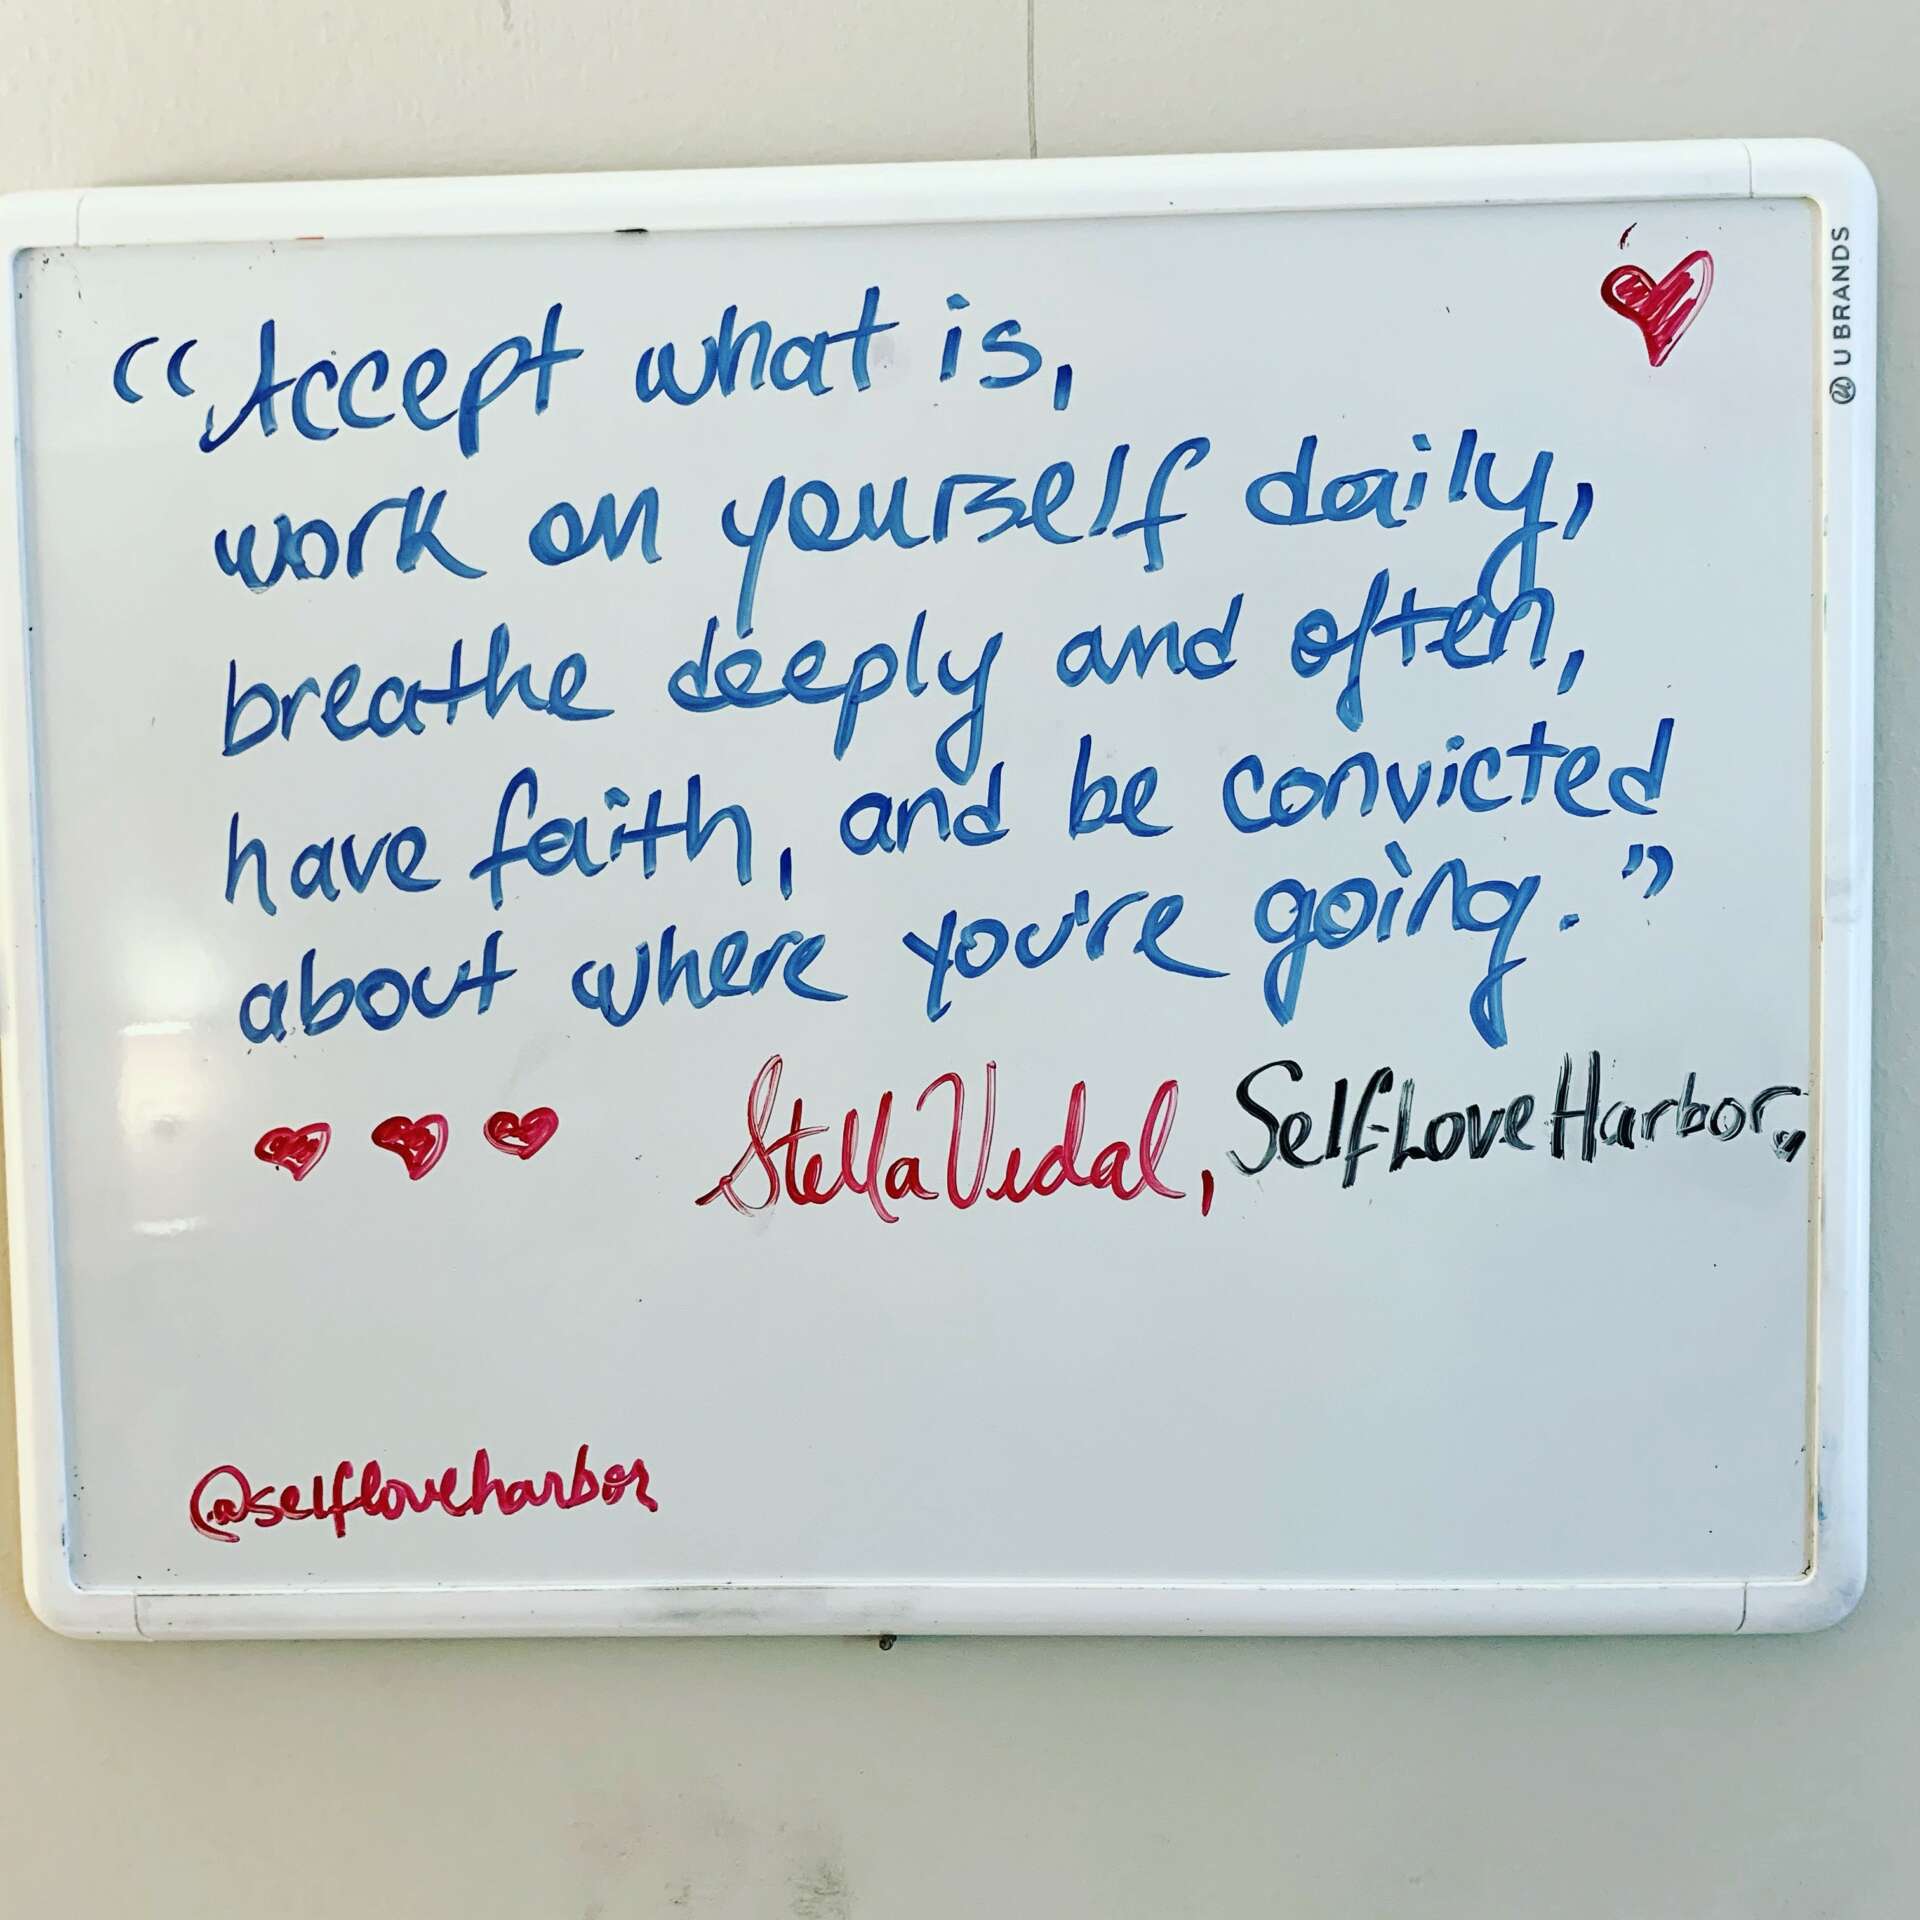 “Accept what is,
work on yourself daily,
breathe deeply and often,
have faith, and be convicted
about where you're going.”
Stella Vidal, SelfLoveHarbor,
@selfloveharbor
U BRANDS